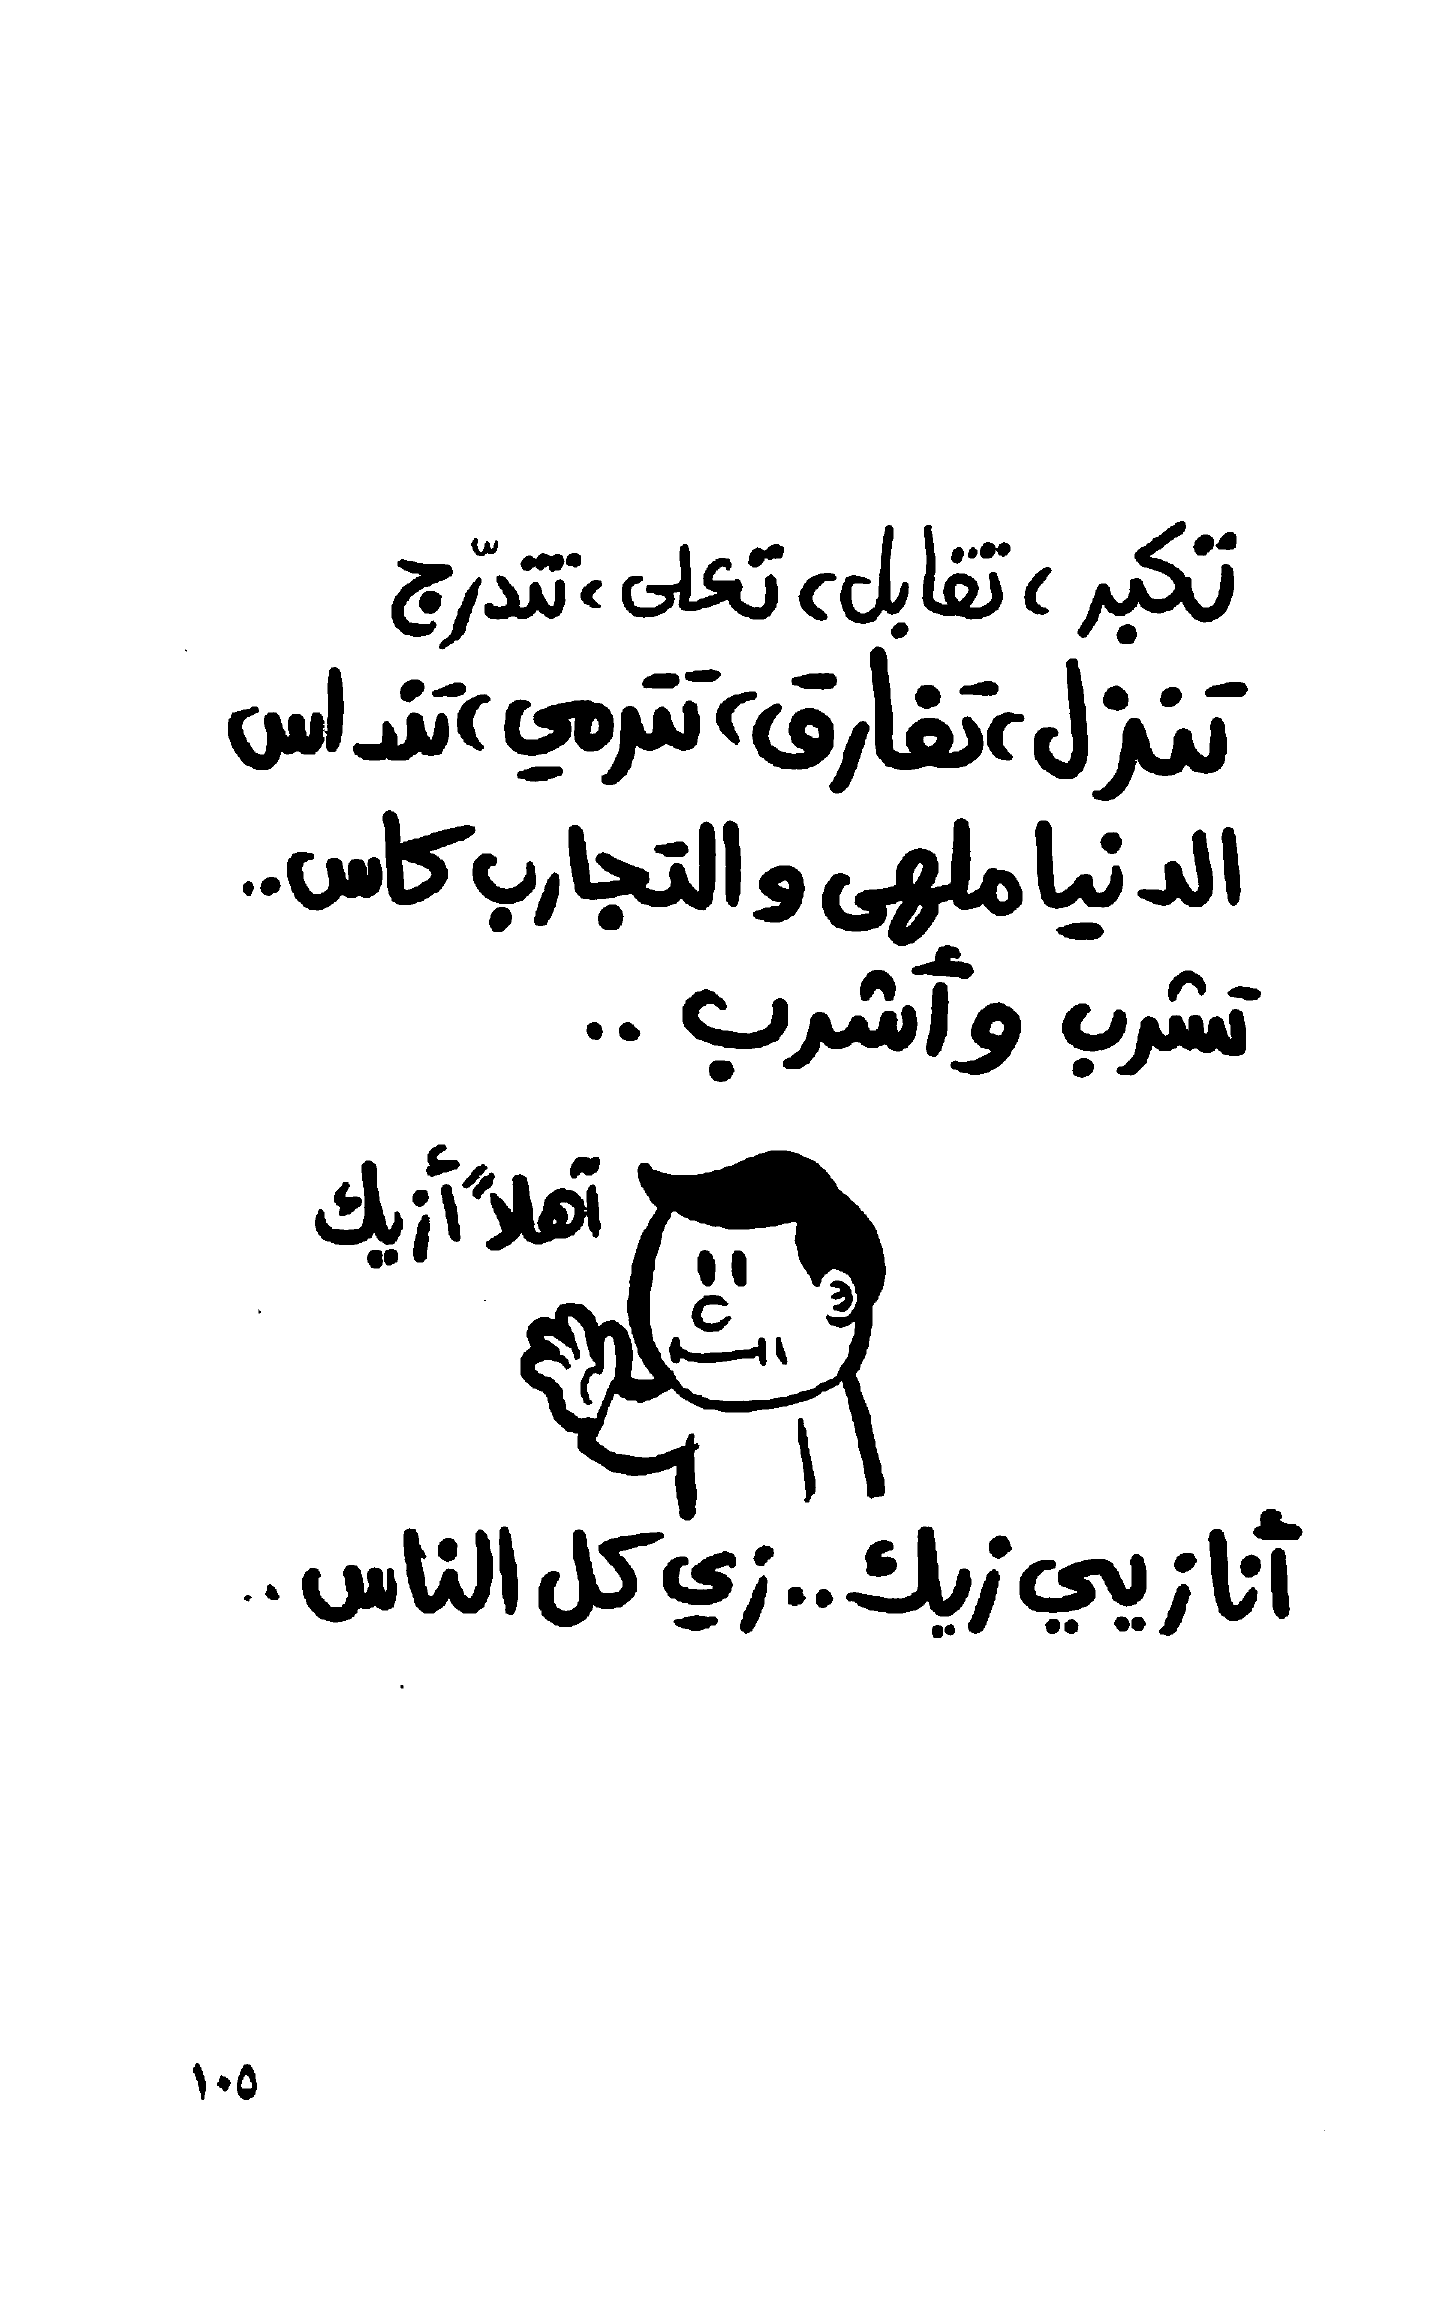 تكبر، تقابل، تعلى، تتدرّج
تنزل، تفارق، تترمي، تنداس
الدنيا ملهى والتجارب كاس..
تشرب وأشرب ..
آهلاً أزيك
أنا زيي زيك.. زي كل الناس ..
١٠٥